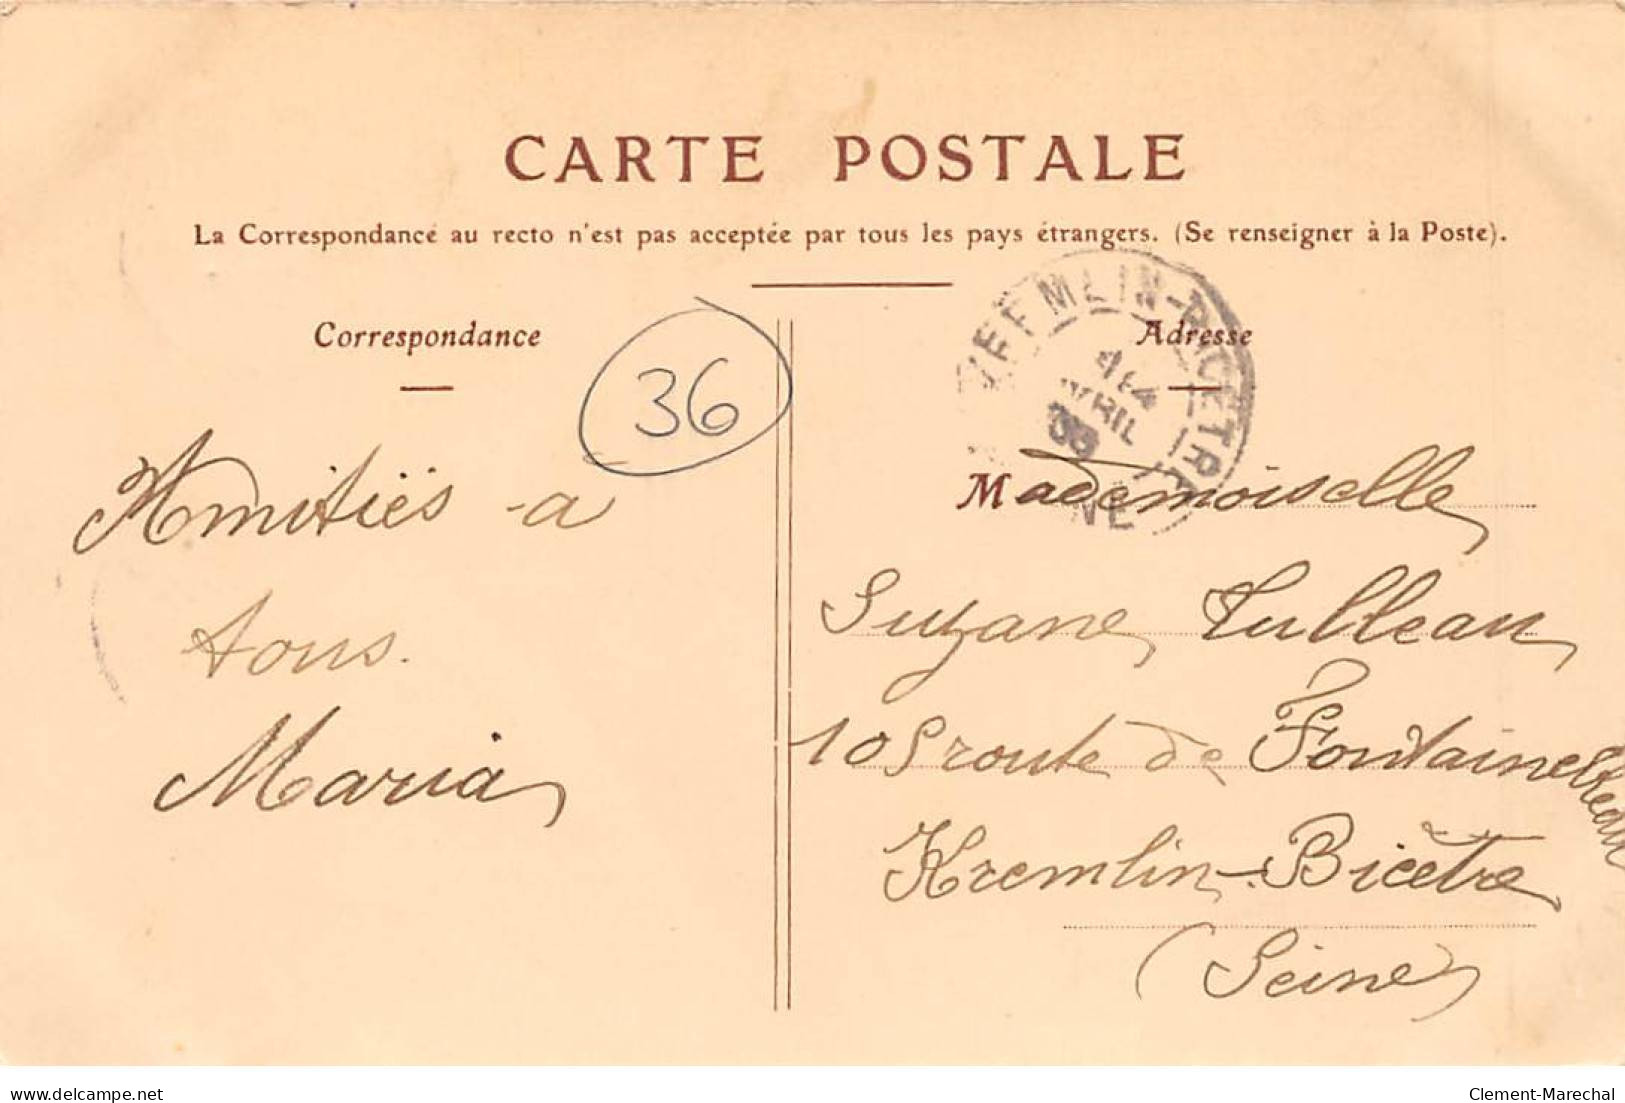 CARTE POSTALE
La Correspondance au recto n'est pas acceptée par tous les pays étrangers. (Se renseigner à la Poste).
Correspondance
Adresse
36
KREMLIN-BICETRE
AVRIL
Amitiés a
tous.
Maria
Mademoiselle
Suzane Tulleau
105 route de Fontainebleau
Kremlin-Bicêtre
(Seine)
www.delcampe.net
Clement-Marechal